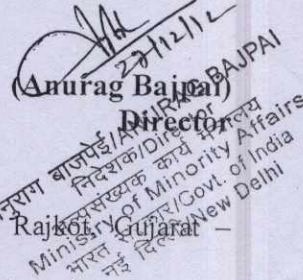 27/12/12
(Anurag Bajpai)
Director
अनुराग बाजपेई/ANURAG BAJPAI
निदेशक/Director
अल्पसंख्यक कार्य मंत्रालय
Ministry of Minority Affairs
भारत सरकार/Govt. of India
नई दिल्ली/New Delhi
Rajkot, Gujarat –